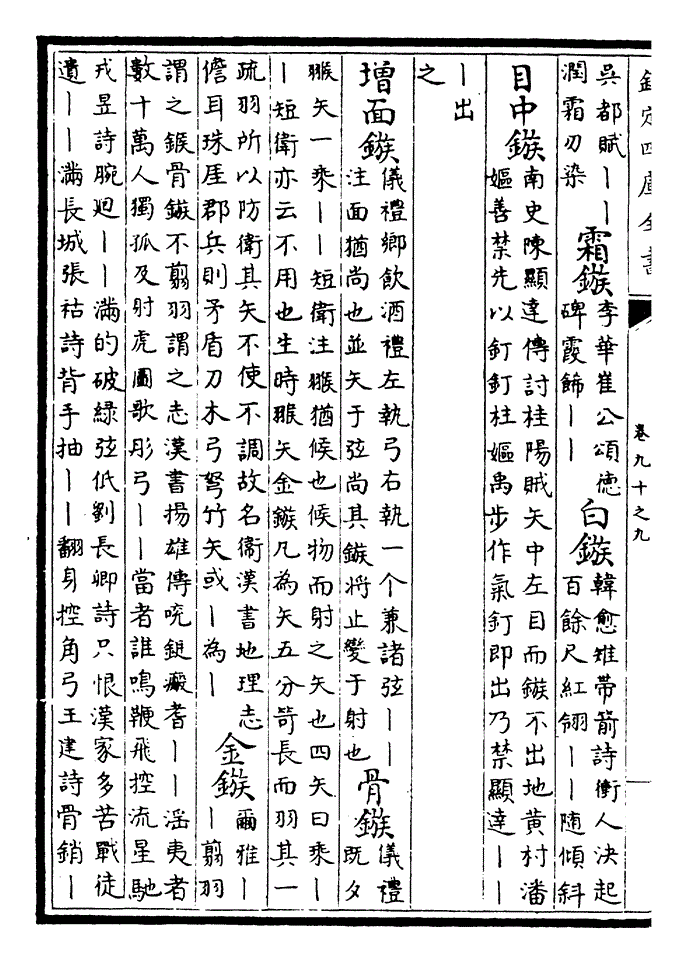 欽定四庫全書
卷九十之九
吳都賦丨丨
潤霜刃染
霜鏃
李華崔公頌德
碑霞餙丨丨
白鏃
韓愈雉帶箭詩衝人決起
百餘尺紅翎丨丨随傾斜
目中鏃
南史陳顯達傳討桂陽賊矢中左目而鏃不出地黄村潘
嫗善禁先以釘釘柱嫗禹步作氣釘即出乃禁顯達丨丨
丨出
之
增面鏃
儀禮鄉飲酒禮左執弓右執一个兼諸弦丨丨
注面猶尚也並矢于弦尚其鏃將止變于射也
骨鏃
儀禮
既夕
翭矢一乘丨丨短衛注翭猶候也候物而射之矢也四矢曰乘丨
丨短衛亦云不用也生時翭矢金鏃凡為矢五分笴長而羽其一
疏羽所以防衛其矢不使不調故名衛漢書地理志
儋耳珠厓郡兵則矛盾刀木弓弩竹矢或丨為丨
金鏃
爾雅丨
丨翦羽
謂之鍭骨鏃不翦羽謂之志漢書揚雄傳吮鋋瘢耆丨丨淫夷者
數十萬人獨孤及射虎圖歌彤弓丨丨當者誰鳴鞭飛控流星馳
戎昱詩腕廻丨丨滿的破綠弦低劉長卿詩只恨漢家多苦戰徒
遺丨丨滿長城張祜詩背手抽丨丨翻身控角弓王建詩骨銷丨